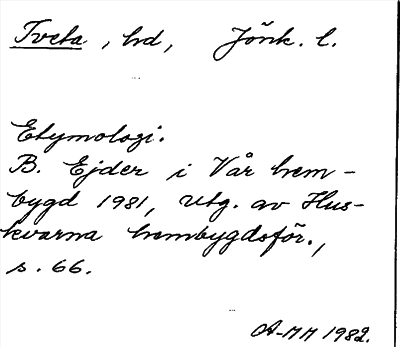 Tveta, hd, Jönk. l.
Etymologi.
B. Ejder i Vår hem-
bygd 1981, utg. av Hus-
kvarna hembygdsför.,
s. 66.
A-MM 1982.